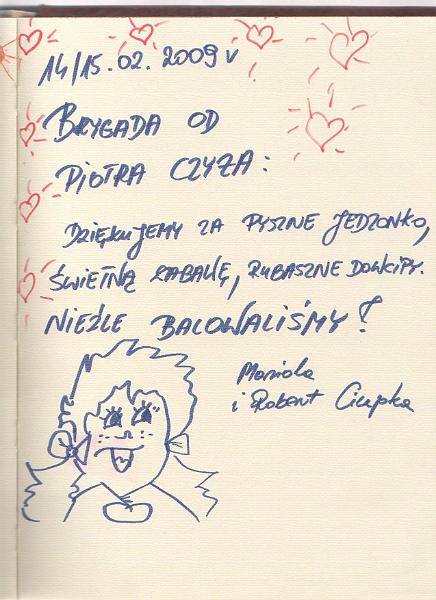 14/15.02.2009 r
BRYGADA OD
PIOTRA CZYŻA:
DZIĘKUJEMY ZA PYSZNE JEDZONKO,
ŚWIETNĄ ZABAWĘ, RUBASZNE DOWCIPY.
NIEŹLE BALOWALIŚMY!
Mariola
i Robert Ciupka